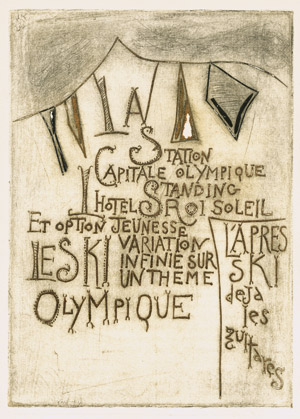 LA
STATION
CAPITALE OLYMPIQUE
STANDING
L'HOTEL ROI SOLEIL
ET OPTION JEUNESSE
LE SKI VARIATION
INFINIE SUR
UN THEME
OLYMPIQUE
L'APRES
SKI
déjà
les
guitares